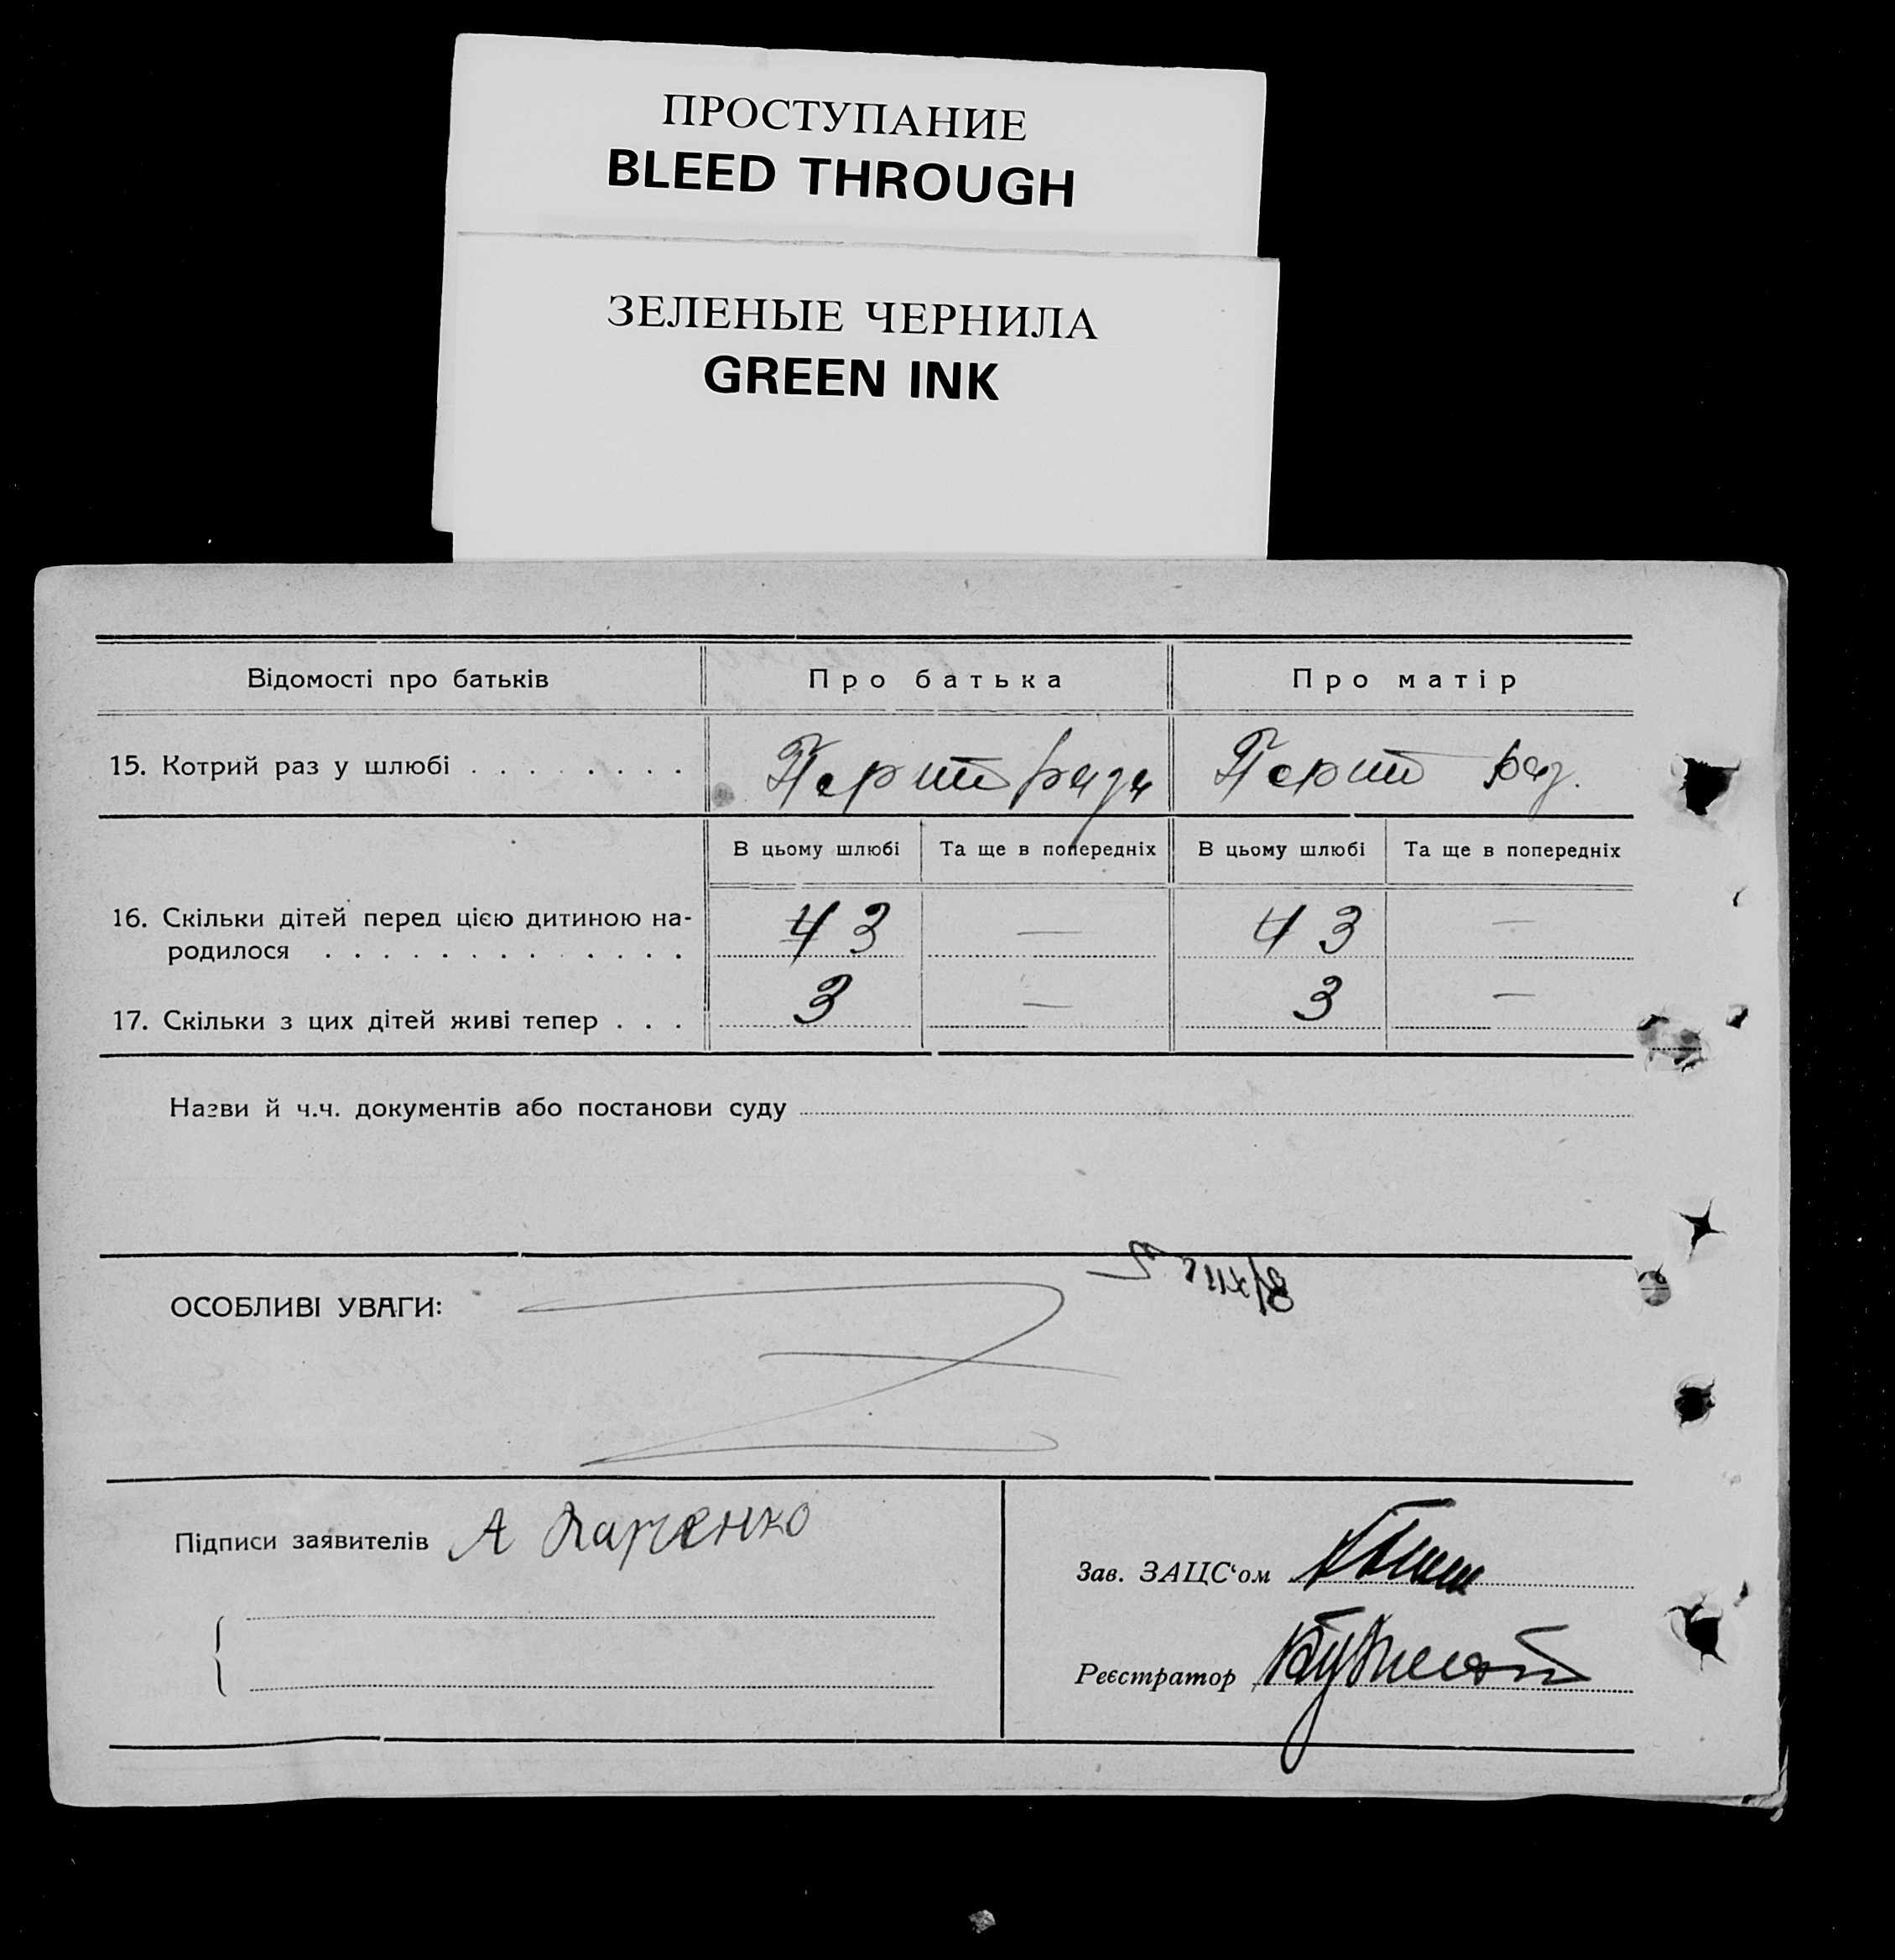 ПРОСТУПАНИЕ
BLEED THROUGH
ЗЕЛЕНЫЕ ЧЕРНИЛА
GREEN INK
Відомості про батьків Про батька Про матір
15. Котрий раз у шлюбі . . . . . . . . Перший раз.
В цьому шлюбі Та ще в попередніх В цьому шлюбі Та ще в попередніх
16. Скільки дітей перед цією дитиною на-
родилося . . . . . . . . . . . . . 4 3 — 4 3 —
17. Скільки з цих дітей живі тепер . . . 3 — 3 —
Назви й ч.ч. документів або постанови суду
ОСОБЛИВІ УВАГИ:
Підписи заявителів А
Зав. ЗАЦС‘ом
Реєстратор